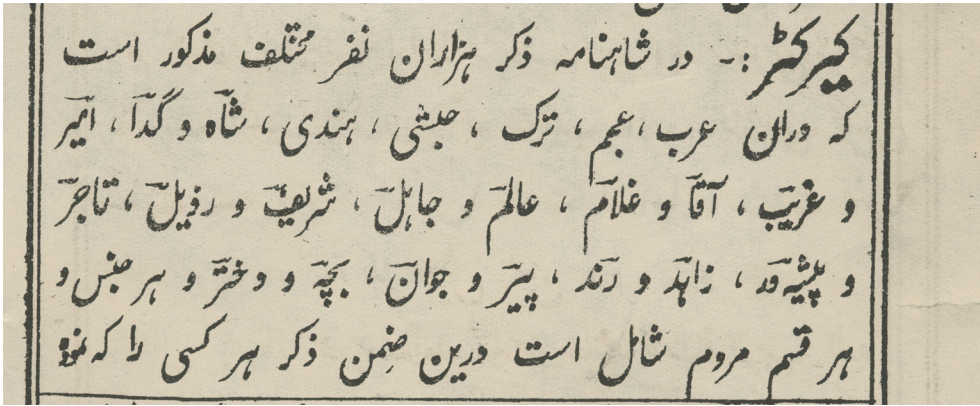 کیرکٹر :- در شاہنامہ ذکر ہزاران نفر مختلف مذکور است
کہ دران عرب، عجم ، ترک ، حبشی ، ہندی ، شاہ و گدا ، امیر
و غریب ، آقا و غلام ، عالم و جاہل ، شریف و رذیل ، تاجر
و پیشہ ور ، زاہد و رند ، پیر و جوان ، بچہ و دختر و ہر جنس و
ہر قسم مردم شامل است درین ضمن ذکر ہر کسی را کہ